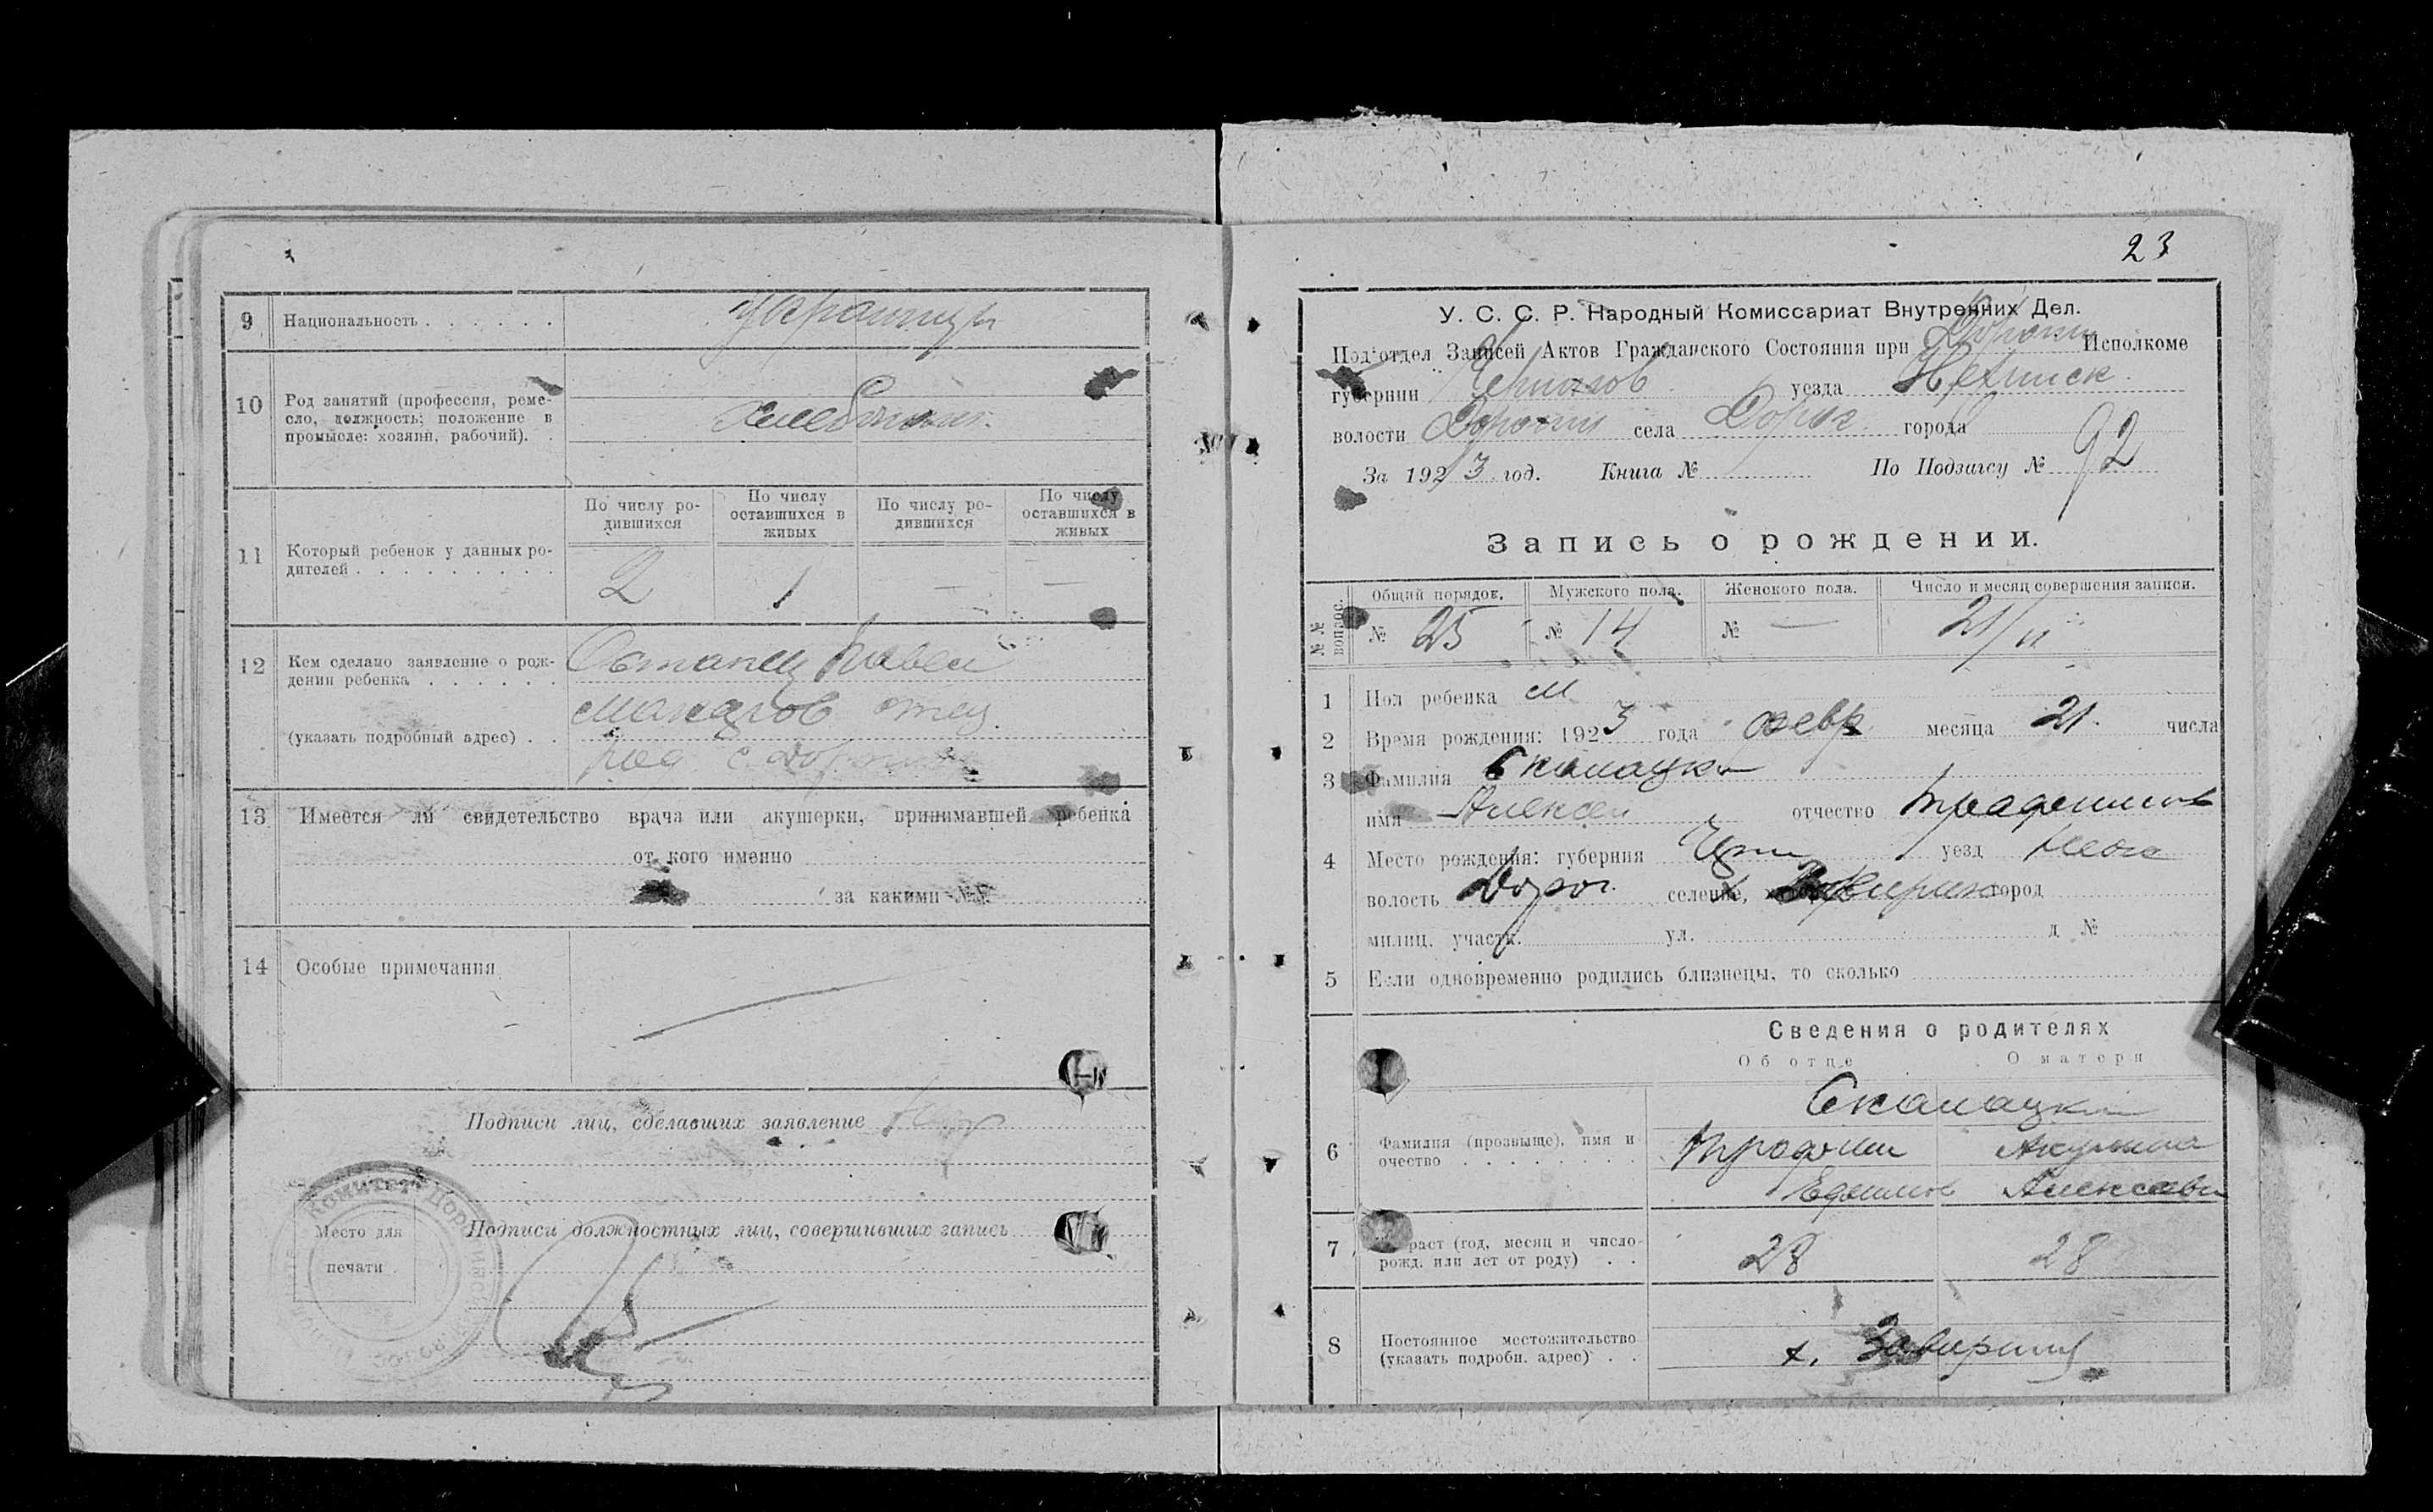 9 Национальность . . . . . . украинцы
10 Род занятий (профессия, реме-
сло, должность; положение в
промысле: хозяин, рабочий). .
хлебопаш.
По числу ро-
дившихся
По числу
оставшихся в
живых
По числу ро-
дившихся
По числу
оставшихся в
живых
11 Который ребенок у данных ро-
дителей . . . . . . . . .
2 1 — —
12 Кем сделано заявление о рож-
дении ребенка . . . . . .
(указать подробный адрес) . .
Остапец Павел
Макаров отец
с.
13 Имеется ли свидетельство врача или акушерки, принимавшей ребенка
от кого именно
за какими №№
14 Особые примечания
Подписи лиц, сделавших заявление
Место для
печати
Комитет
Подписи должностных лиц, совершивших запись
23
У. С. С. Р. Народный Комиссариат Внутренних Дел.
Под'отдел Записей Актов Гражданского Состояния при Дорогин Исполкоме
губернии Чернигов уезда Нежинск.
волости Дорогин села Дорог. города
За 1923 год. Книга № По Подзагсу № 92
Запись о рождении.
№№ вопрос.
Общий порядок. Мужского пола. Женского пола. Число и месяц совершения записи.
№ 25 № 14 № — 21/II
1 Пол ребенка М
2 Время рождения: 1923 года февр месяца 21. числа
3 Фамилия Скалацки
имя Алексей отчество Трофимов
4 Место рождения: губерния Чрн уезд
волость Дорог. селение, х город
милиц. участк. ул. д №
5 Если одновременно родились близнецы, то сколько
Сведения о родителях
Об отце О матери
Скалацки
6 Фамилия (прозвыще), имя и
очество . . . . . . . .
Трофим Акулина
Ефимов Алексеевн
7 раст (год, месяц и число
рожд. или лет от роду) . .
28 28
8 Постоянное местожительство
(указать подробн. адрес) . .
х.